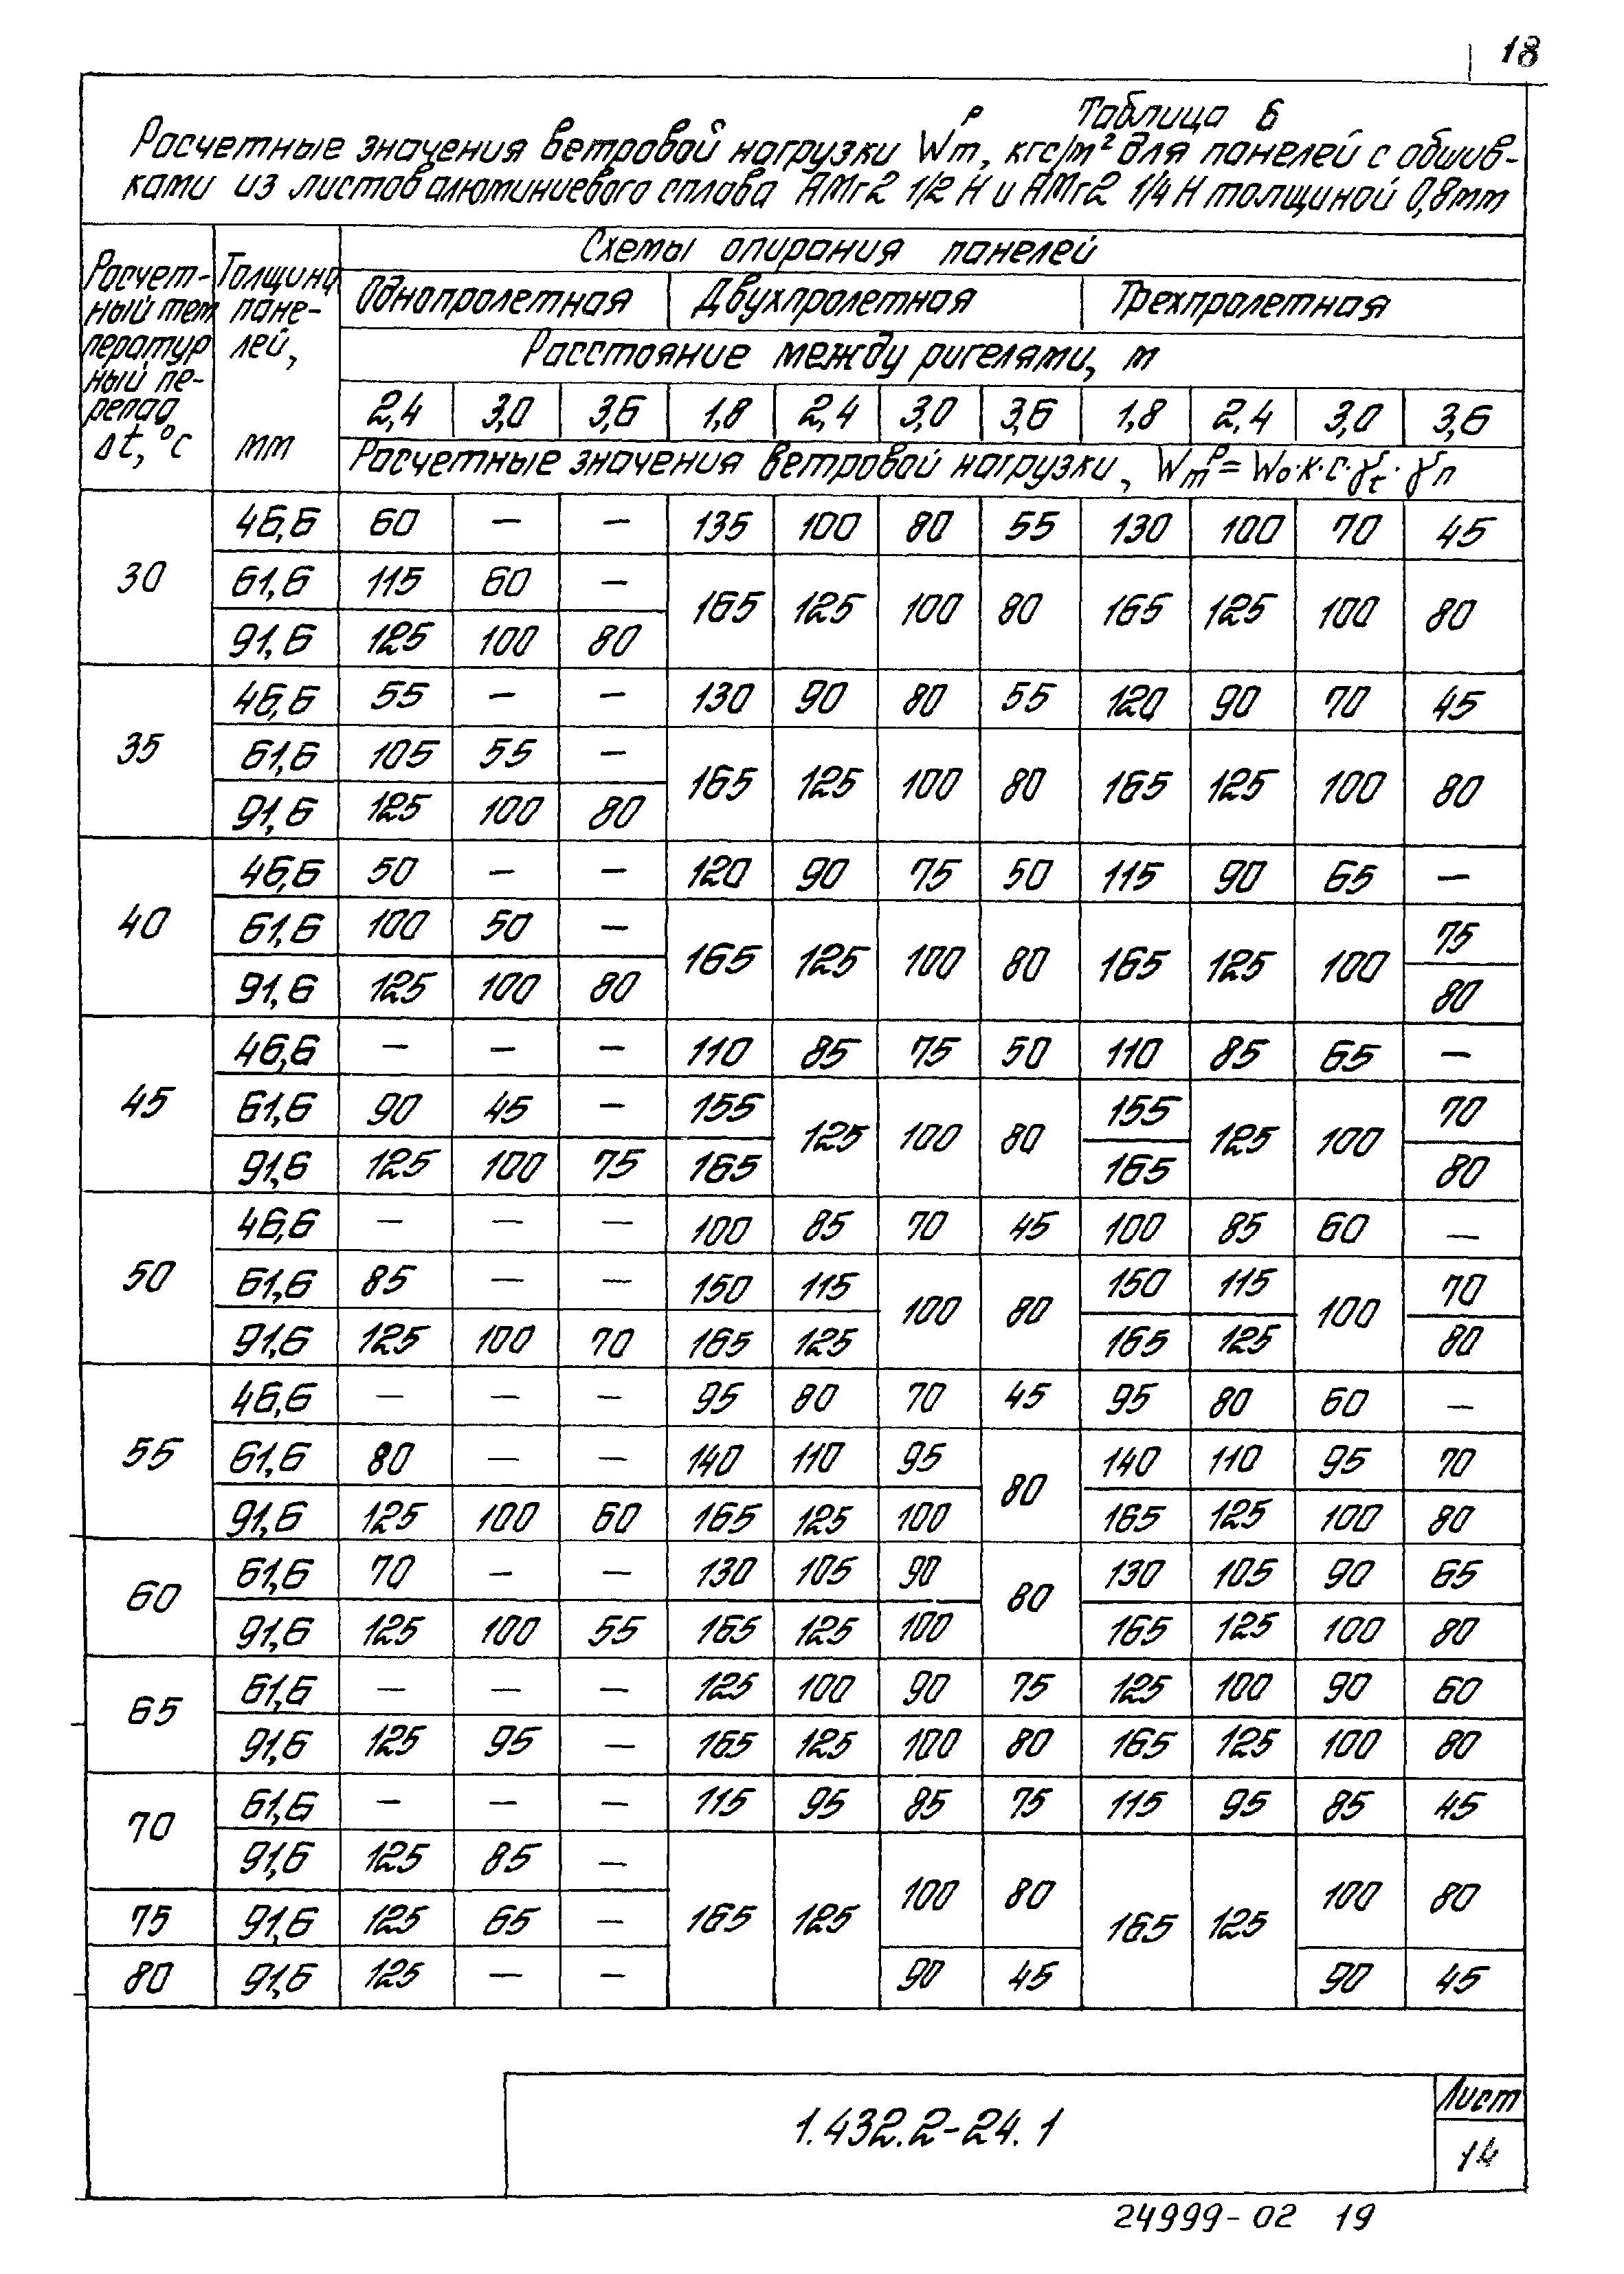 18
Таблица 6
Расчетные значения ветровой нагрузки Wm^р, кгс/m² для панелей с обшив-
ками из листов алюминиевого сплава АМг2 1/2 Н и АМг2 1/4 Н толщиной 0,8 mm
Расчет- ный тем пературный пе- репад Δt, °С
Толщина пане- лей, mm
Схемы опирания панелей
Однопролетная Двухпролетная Трехпролетная
Расстояние между ригелями, m
2,4 3,0 3,6 1,8 2,4 3,0 3,6 1,8 2,4 3,0 3,6
Расчетные значения ветровой нагрузки, Wm^р = Wо·к·с·γt·γn
30
46,6 60 — — 135 100 80 55 130 100 70 45
61,6 115 60 — 165 125 100 80 165 125 100 80
91,6 125 100 80
35
46,6 55 — — 130 90 80 55 120 90 70 45
61,6 105 55 — 165 125 100 80 165 125 100 80
91,6 125 100 80
40
46,6 50 — — 120 90 75 50 115 90 65 —
61,6 100 50 — 165 125 100 80 165 125 100 75
91,6 125 100 80 80
45
46,6 — — — 110 85 75 50 110 85 65 —
61,6 90 45 — 155 125 100 80 155 125 100 70
91,6 125 100 75 165 165 80
50
46,6 — — — 100 85 70 45 100 85 60 —
61,6 85 — — 150 115 100 80 150 115 100 70
91,6 125 100 70 165 125 165 125 80
55
46,6 — — — 95 80 70 45 95 80 60 —
61,6 80 — — 140 110 95 80 140 110 95 70
91,6 125 100 60 165 125 100 165 125 100 80
60
61,6 70 — — 130 105 90 80 130 105 90 65
91,6 125 100 55 165 125 100 165 125 100 80
65
61,6 — — — 125 100 90 75 125 100 90 60
91,6 125 95 — 165 125 100 80 165 125 100 80
70
61,6 — — — 115 95 85 75 115 95 85 45
91,6 125 85 — 165 125 100 80 165 125 100 80
75 91,6 125 65 —
80 91,6 125 — — 90 45 90 45
1.432.2-24.1
Лист
14
24999-02 19